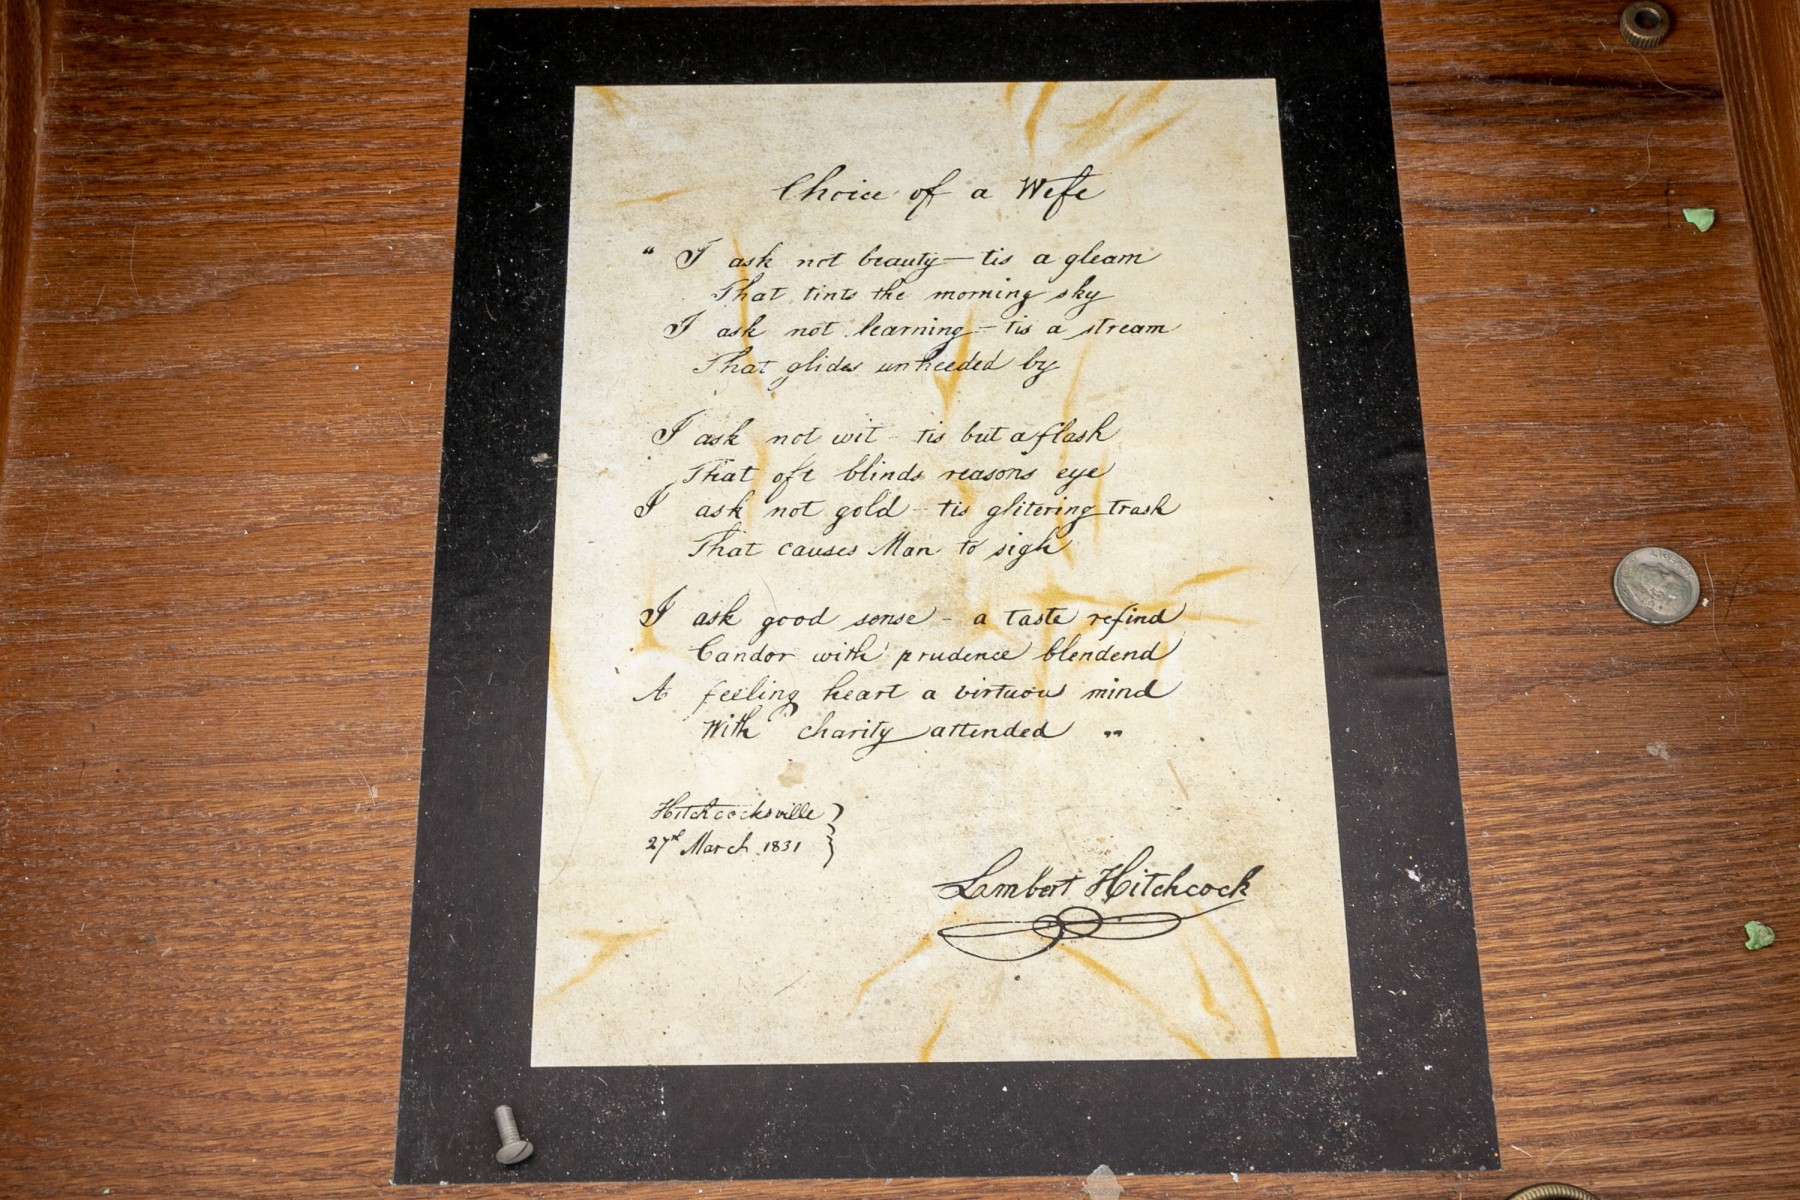 Choice of a Wife
" I ask not beauty — tis a gleam
That tints the morning sky
I ask not learning — tis a stream
That glides unheeded by
I ask not wit - tis but a flash
That oft blinds reasons eye
I ask not gold - tis glitering trash
That causes Man to sigh
I ask good sense - a taste refind
Candor with prudence blendend
A feeling heart a virtuou mind
With charity attended "
Hitchcocksville }
27th March 1831
Lambert Hitchcock